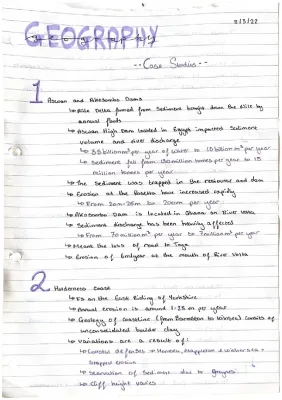 11/3/22
GEOGRAPHY
-- Case Studies --
1 Aswan and Akosombo Dams
↳ Nile Delta formed from Sediment brought down the Nile by
annual floods
↳ Aswan High Dam located in Egypt impacted Sediment
volume and river discharge
per year of water to
↳ Sediment fell from 130 million tonnes per year to 15
million tonnes per year
↳ The Sediment was trapped in the resivour and dam
↳ Erosion at the Rosetta have increased rapidly
↳ From 20m-25m to 200m per year
↳ Akosombo Dam is located in Ghana on River Volta
↳ Sediment discharge has been heavily affected
↳ From 70 million m³ per year to 7 million m³ per year
↳ Meant the loss of road to Togo
↳ Erosion of 6m/year at the mouth of River Volta
2 Holderness Coast
↳ Is on the East Riding of Yorkshire
↳ Annual erosion is around 1.25 m per year
↳ Geology of coastline (from Barmston to Kilnsea) consits of
unconsolidated boulder clay
↳ Variations are a result of:
↳ Coastal defenses → Hornsea, Mappleton & Withernsea =
stopped erosion
↳ Starvation of Sediment due to Groynes
↳ Cliff height varies